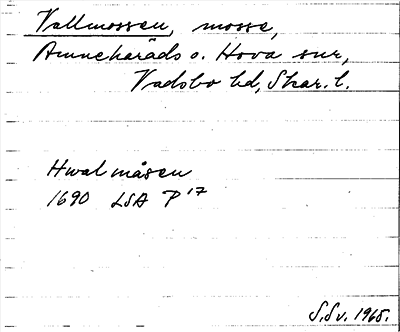 Vallmossen, mosse,
Amnehärads o. Hova snr,
Vadsbo hd, Skar. l.
Hwalmåsen
1690 LSA P 17
S.Sv. 1965.